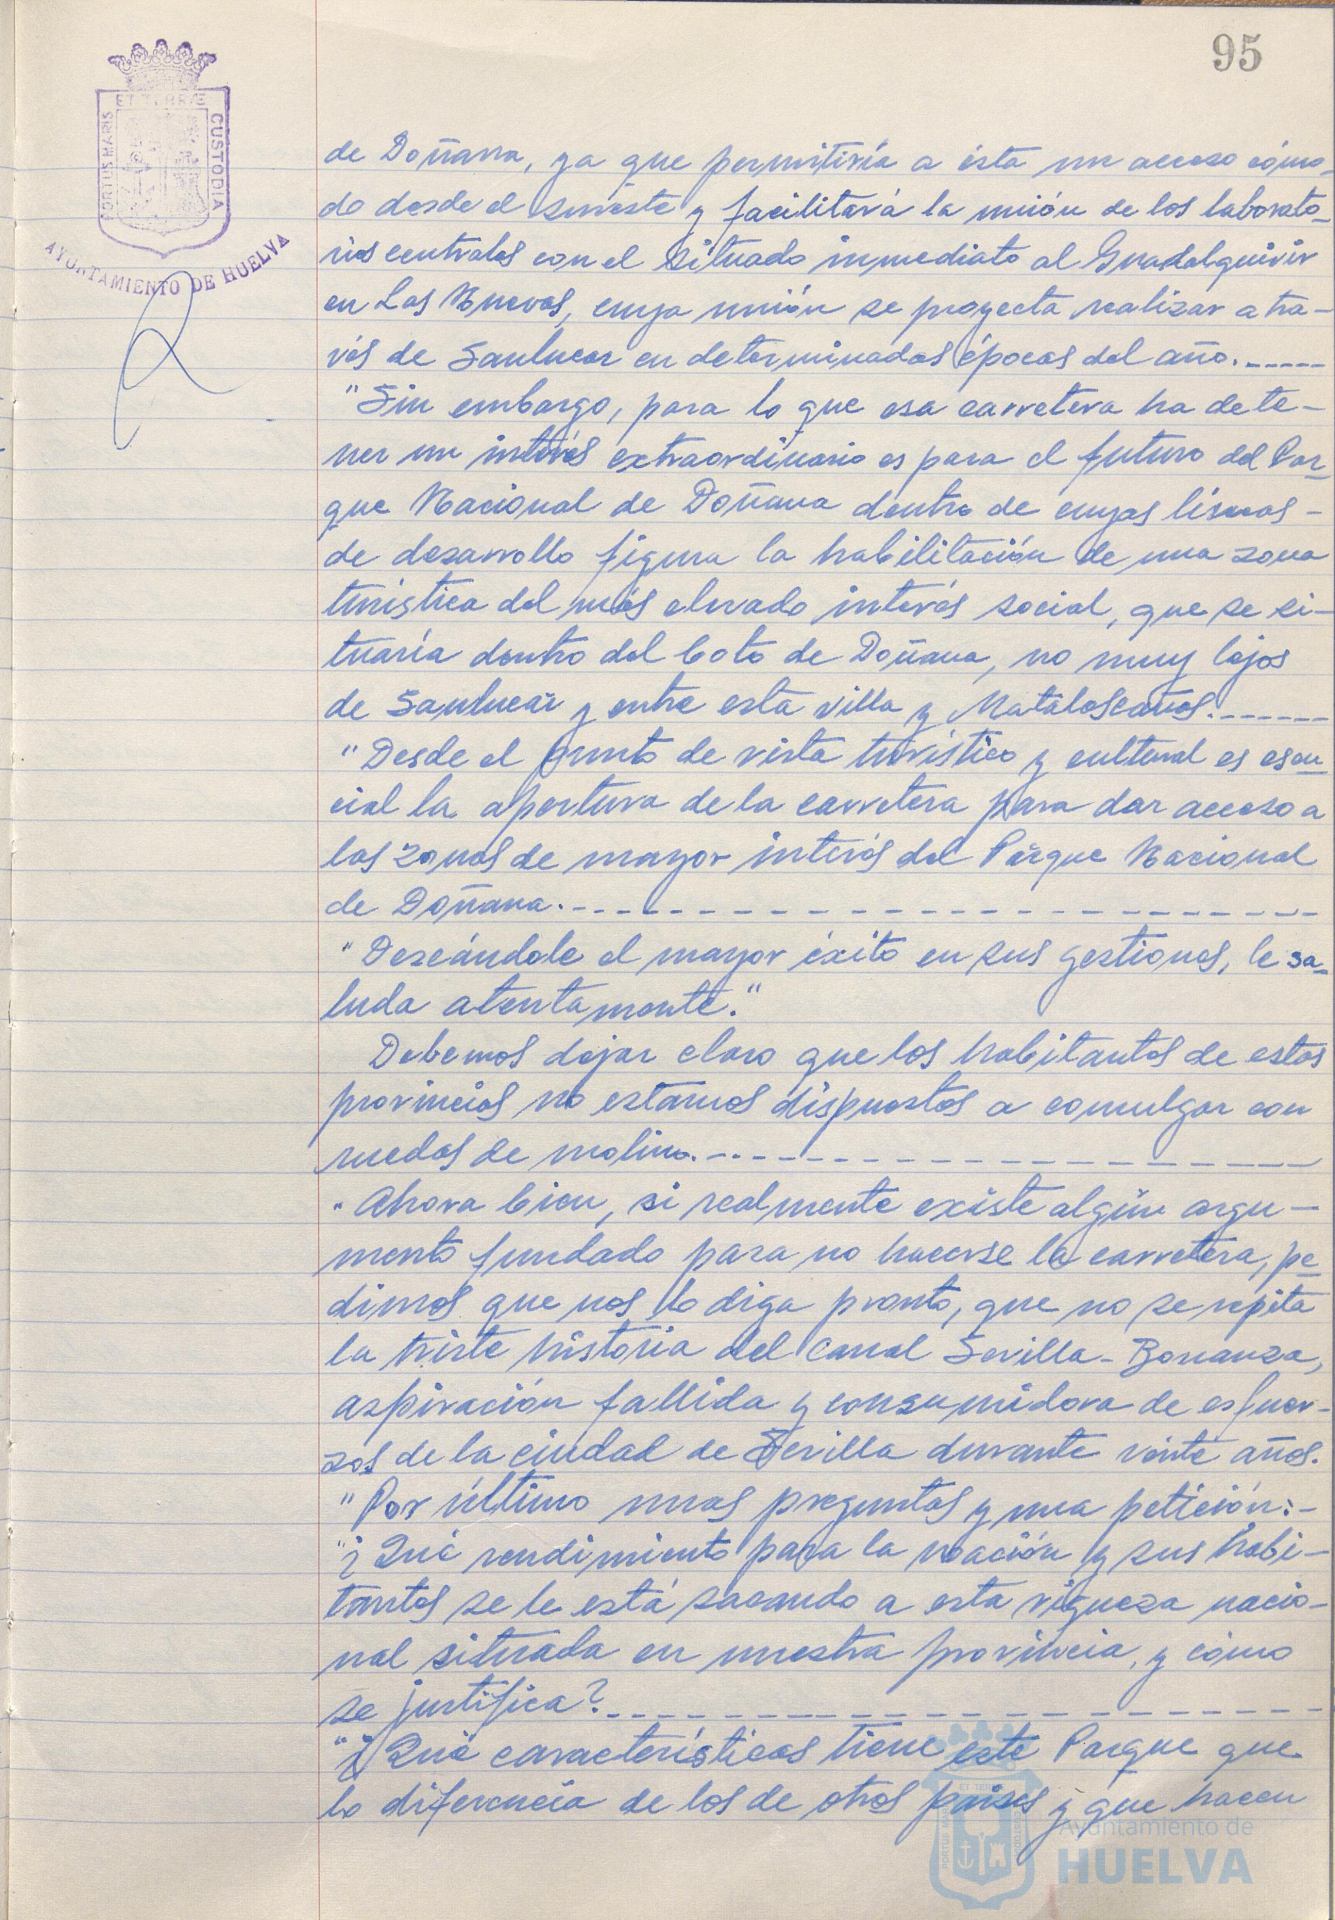 95
ET TERRÆ
PORTUS MARIS
CUSTODIA
AYUNTAMIENTO DE HUELVA
de Doñana, ya que permitiría a ésta un acceso cómo-
do desde el sureste y facilitará la unión de los laborato-
rios centrales con el situado inmediato al Guadalquivir
en Las Nuevas, cuya unión se proyecta realizar a tra-
vés de Sanlucar en determinadas épocas del año.-----
"Sin embargo, para lo que esa carretera ha de te-
ner un interés extraordinario es para el futuro del Par-
que Nacional de Doñana dentro de cuyas líneas -
de desarrollo figura la habilitación de una zona
turística del más elevado interés social, que se si-
tuaría dentro del Coto de Doñana, no muy lejos
de Sanlucar y entre esta villa y Matalascañas.------
"Desde el punto de vista turístico y cultural es esen-
cial la apertura de la carretera para dar acceso a
las zonas de mayor interés del Parque Nacional
de Doñana.--------------------
"Deseándole el mayor éxito en sus gestiones, le sa-
luda atentamente."
Debemos dejar claro que los habitantes de estas
provincias no estamos dispuestos a comulgar con
ruedas de molino.----------------
"Ahora bien, si realmente existe algún argu-
mento fundado para no hacerse la carretera, pe-
dimos que nos lo diga pronto, que no se repita
la triste historia del Canal Sevilla-Bonanza,
aspiración fallida y consumidora de esfuer-
zos de la ciudad de Sevilla durante veinte años.
"Por último unas preguntas y una petición:-
"¿Qué rendimiento para la nación y sus habi-
tantes se le está sacando a esta riqueza nacio-
nal situada en nuestra provincia, y cómo
se justifica?--------------------
"¿Qué características tiene este Parque que
lo diferencia de los de otros países y que hacen
Ayuntamiento de
HUELVA